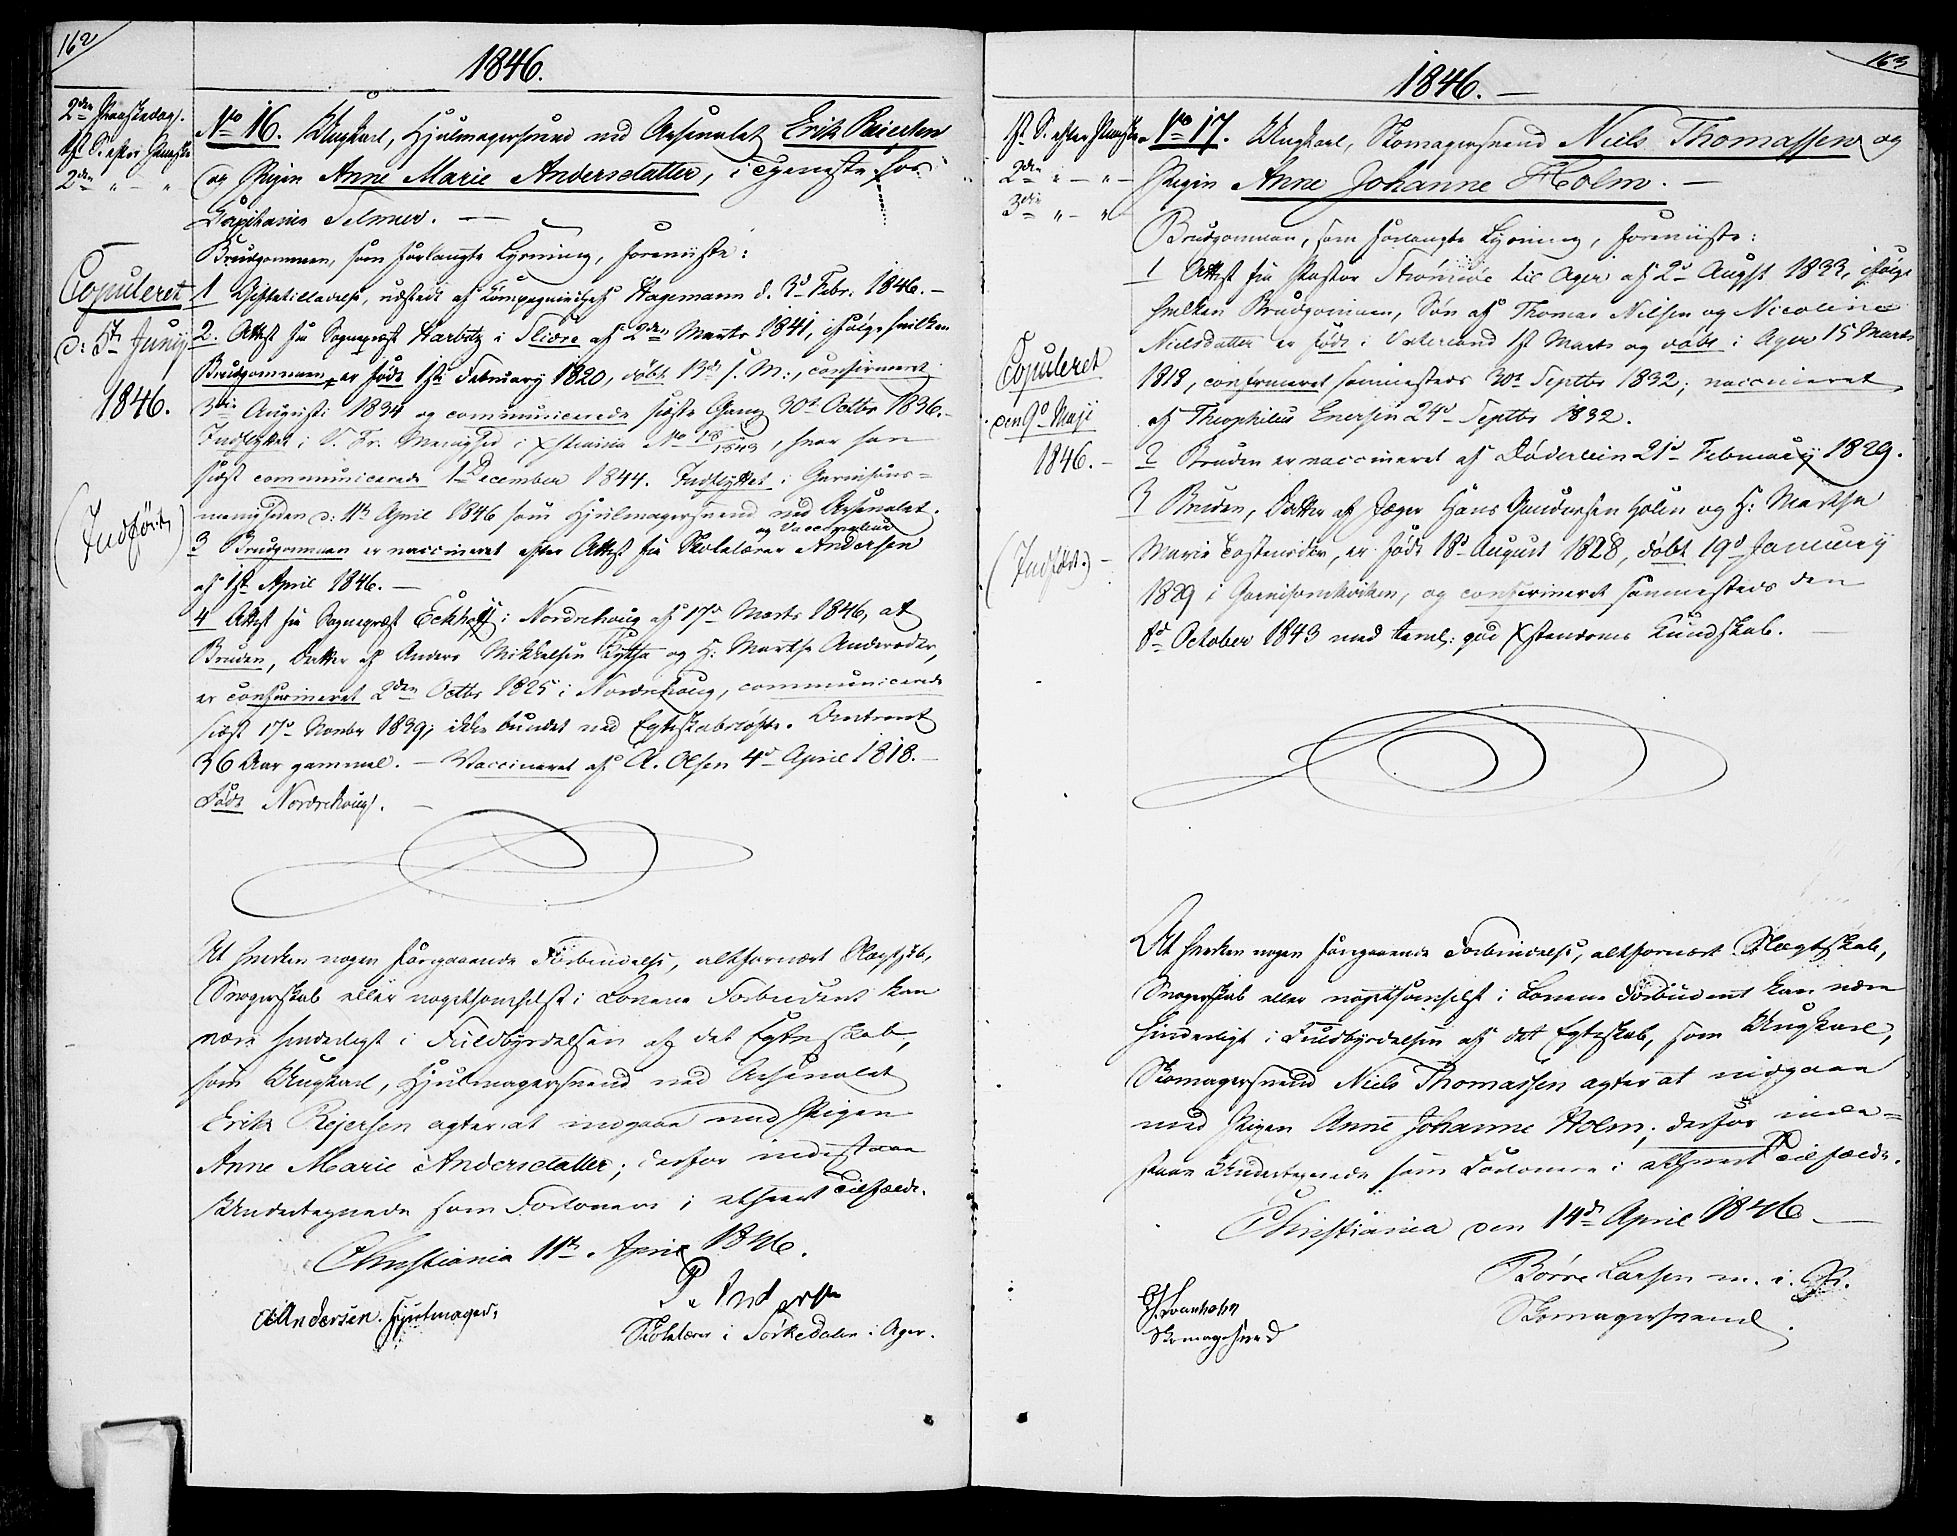 162
1846.
2den Paaskedag.
1st S. efter Paaske
2den " — "
Copuleret
d: 5te Junij
1846.
(Indført)
No 16. Ungkarl, Hjulmagersvend ved Arsenalet Erik Reiersen
og Pigen Anne Marie Andersdatter, i Tjeneste hos
Capitain Telmer. —
Brudgommen, som forlangte Lysning, foreviiste:
1 Giftetilladelse, udstedt af Kompagnichef Hagemann d. 3d Febr. 1846. —
2. Attest fra Sognepræst Harbitz i Slidre af 2den Marts 1841, ifølge hvilken
Brudgommen er født 1ste February 1820, døbt 13d s. M:, confirmeret
3die August 1834 og communicerede sidste Gang 30d Octbr 1836. —
Indflyttet i V. Fr. Menighed i Xstiania No 18/1843, hvor han
sidst communicerede 1 December 1844. Indflyttet i Garnisons-
menigheden d: 11te April 1846 som Hjulmagersvend ved Arsenalet.
3 Brudgommen er vaccineret efter Attest fra Skolelærer og Vaccinateur Andersen
af 1ste April 1846. —
4 Attest fra Sognepræst Eckhoff i Norderhoug af 17d Marts 1846, at
Bruden, Datter af Anders Mikkelsen og H: Marthe Andersdtr,
er confirmeret 2den Octbr 1825 i Norderhoug, communicerede
sidst 17d Novbr 1839; ikke bundet ved Egteskabsløfte. Omtrent
36 Aar gammel. — Vaccineret af A. Olsen 4d April 1818. —
Født Norderhoug. —
At hverken nogen foregaaende Forbindelse, altfornært Slægtskb,
Svogerskab eller nogetsomhelst i Lovene Forbudent kan
være hinderligt i Fuldbyrdelsen af det Egteskab,
som Ungkarl, Hjulmagersvend ved Arsenalet
Erik Rejersen agter at indgaae med Pigen
Anne Marie Andersdatter; derfor indestaae
Undertegnede som Forlovere i ethvert Tilfælde.
Christiania 11te April 1846.
P. Andersen
Andersen. Hjulmager.
Skolelærer i Sørkedalen i Ager.
163
1846. —
1st S. efter Paaske
2den " — " —
3die " — "
Copuleret
den 9d Maji
1846. —
(Indført.) —
No 17. Ungkarl, Skomagersvend Niels Thomassen og
Pigen Anne Johanne Holm. —
Brudgommen, som forlangte Lysning, foreviiste:
1 Attest fra Pastor til Ager af 2d August 1833, ifølge
hvilken Brudgommen, Søn af Thomas Nilsen og Nicoline
Nielsdatter er født i Vaterland 1st Marts og døbt i Ager 15 Marts
1818, confirmeret sammesteds 30d Septbr 1832; vaccineret
af Theophilus Enersen 24d Septbr 1832.
2 Bruden er vaccineret af Døderlein 21d February 1829.
3 Bruden, Datter af Jæger Hans Gundersen Holm og H: Marthe
Marie Torstensdtr, er født 18d August 1828, døbt 19d January
1829 i Garnisonskirken, og confirmeret sammesteds den
8d October 1843 med temel: god Xstendoms Kundskab. —
At hverken nogen foregaaende Forbindelse, altfornært Slægtskab,
Svogerskab eller nogetsomhelst i Lovene Forbudent kan være
hinderligt i Fuldbyrdelsen af det Egteskab, som Ungkarl,
Skomagersvend Niels Thomassen agter at indgaae
med Pigen Anne Johanne Holm; derfor inde-
staae Undertegnede som Forlovere i ethvert Tilfælde.
Christiania den 14de April 1846. —
Børre Larsen m. i. P.
Skomagersvend.
Skomagersvend